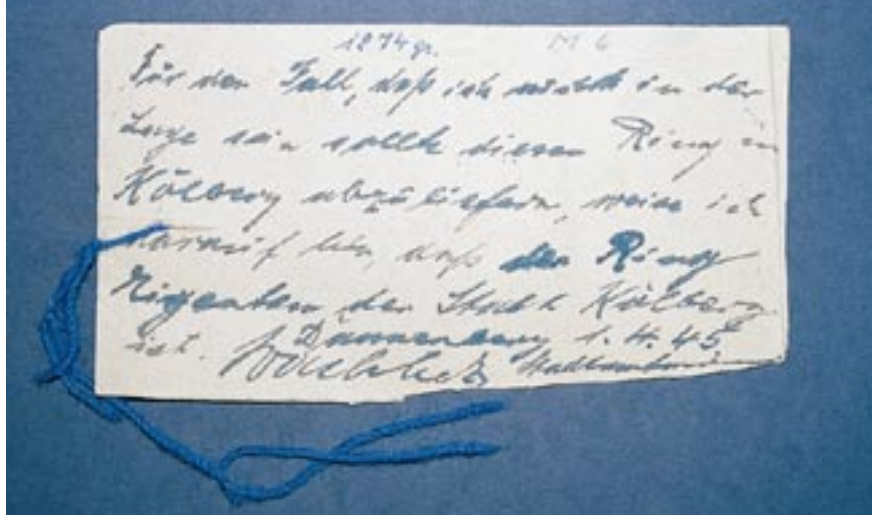 1874 gr. M 6
Für den Fall, daß ich nicht in der
Lage sein sollte diesen Ring in
Kolberg abzuliefern, weise ich
darauf hin, daß der Ring
Eigentum der Stadt Kolberg
ist. Dannenberg 1. 4. 45